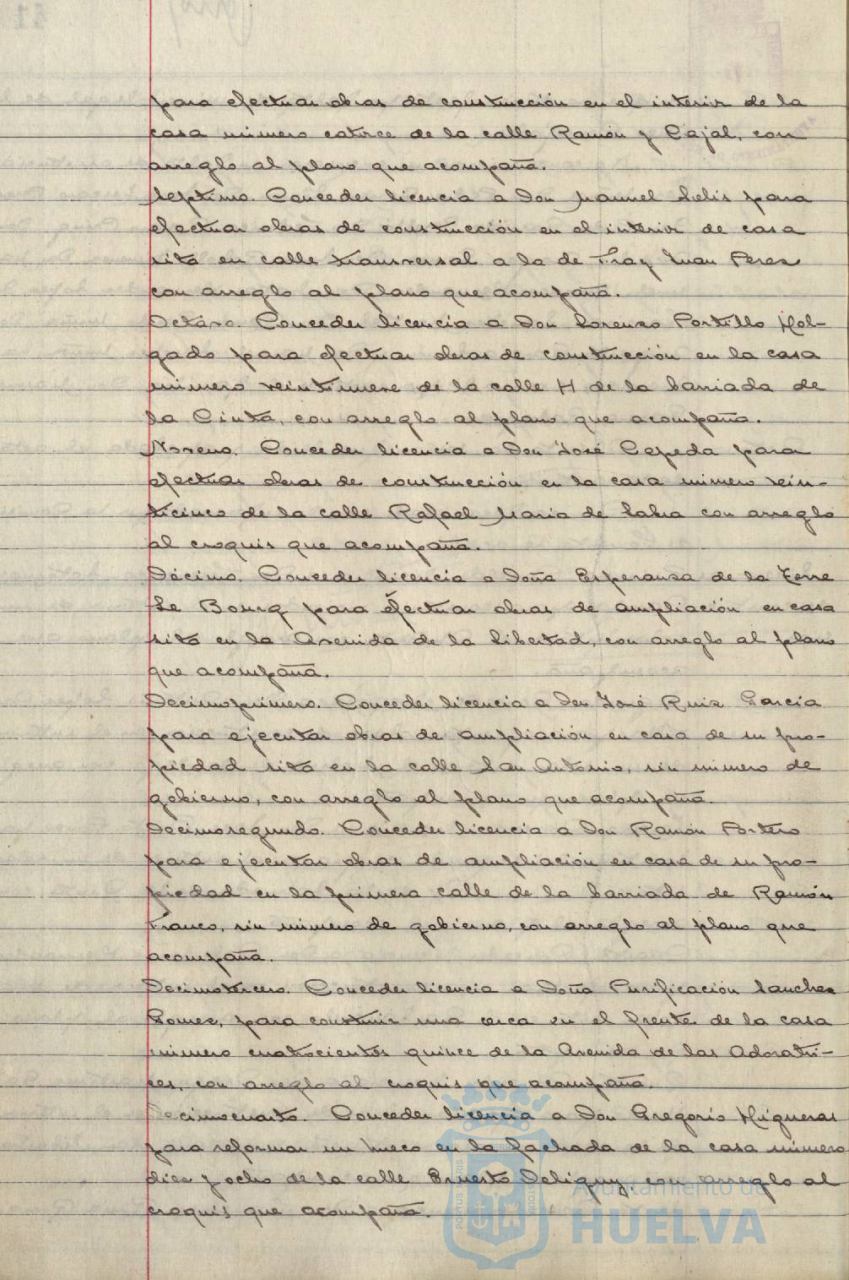 para efectuar obras de construcción en el interior de la
casa número catorce de la calle Ramón y Cajal, con
arreglo al plano que acompaña.
Septimo. Conceder licencia a Don Manuel Solís para
efectuar obras de construcción en el interior de casa
sita en calle transversal a la de Fray Juan Perez
con arreglo al plano que acompaña.
Octavo. Conceder licencia a Don Lorenzo Portillo Hol-
gado para efectuar obras de construcción en la casa
número veintinueve de la calle H de la barriada de
la Cinta, con arreglo al plano que acompaña.
Noveno. Conceder licencia a Don José Cepeda para
efectuar obras de construcción en la casa número vein-
ticinco de la calle Rafael Maria de Labra con arreglo
al croquis que acompaña.
Décimo. Conceder licencia a Doña Esperanza de la Torre
Le Bourg para efectuar obras de ampliación en casa
sita en la Avenida de la Libertad, con arreglo al plano
que acompaña.
Decimoprimero. Conceder licencia a Don José Ruiz García
para ejecutar obras de ampliación en casa de su pro-
piedad sita en la calle San Antonio, sin número de
gobierno, con arreglo al plano que acompaña.
Decimosegundo. Conceder licencia a Don Ramón Portero
para ejecutar obras de ampliación en casa de su pro-
piedad en la primera calle de la barriada de Ramón
Franco, sin número de gobierno, con arreglo al plano que
acompaña.
Decimotercero. Conceder licencia a Doña Purificación Sanchez
Gomez, para construir una cerca en el frente de la casa
número cuatrocientos quince de la Avenida de las Adoratri-
ces, con arreglo al croquis que acompaña.
Decimocuarto. Conceder licencia a Don Gregorio Higueras
para reformar un hueco en la fachada de la casa número
diez y ocho de la calle Ernesto Deligny, con arreglo al
croquis que acompaña.
Ayuntamiento de
HUELVA